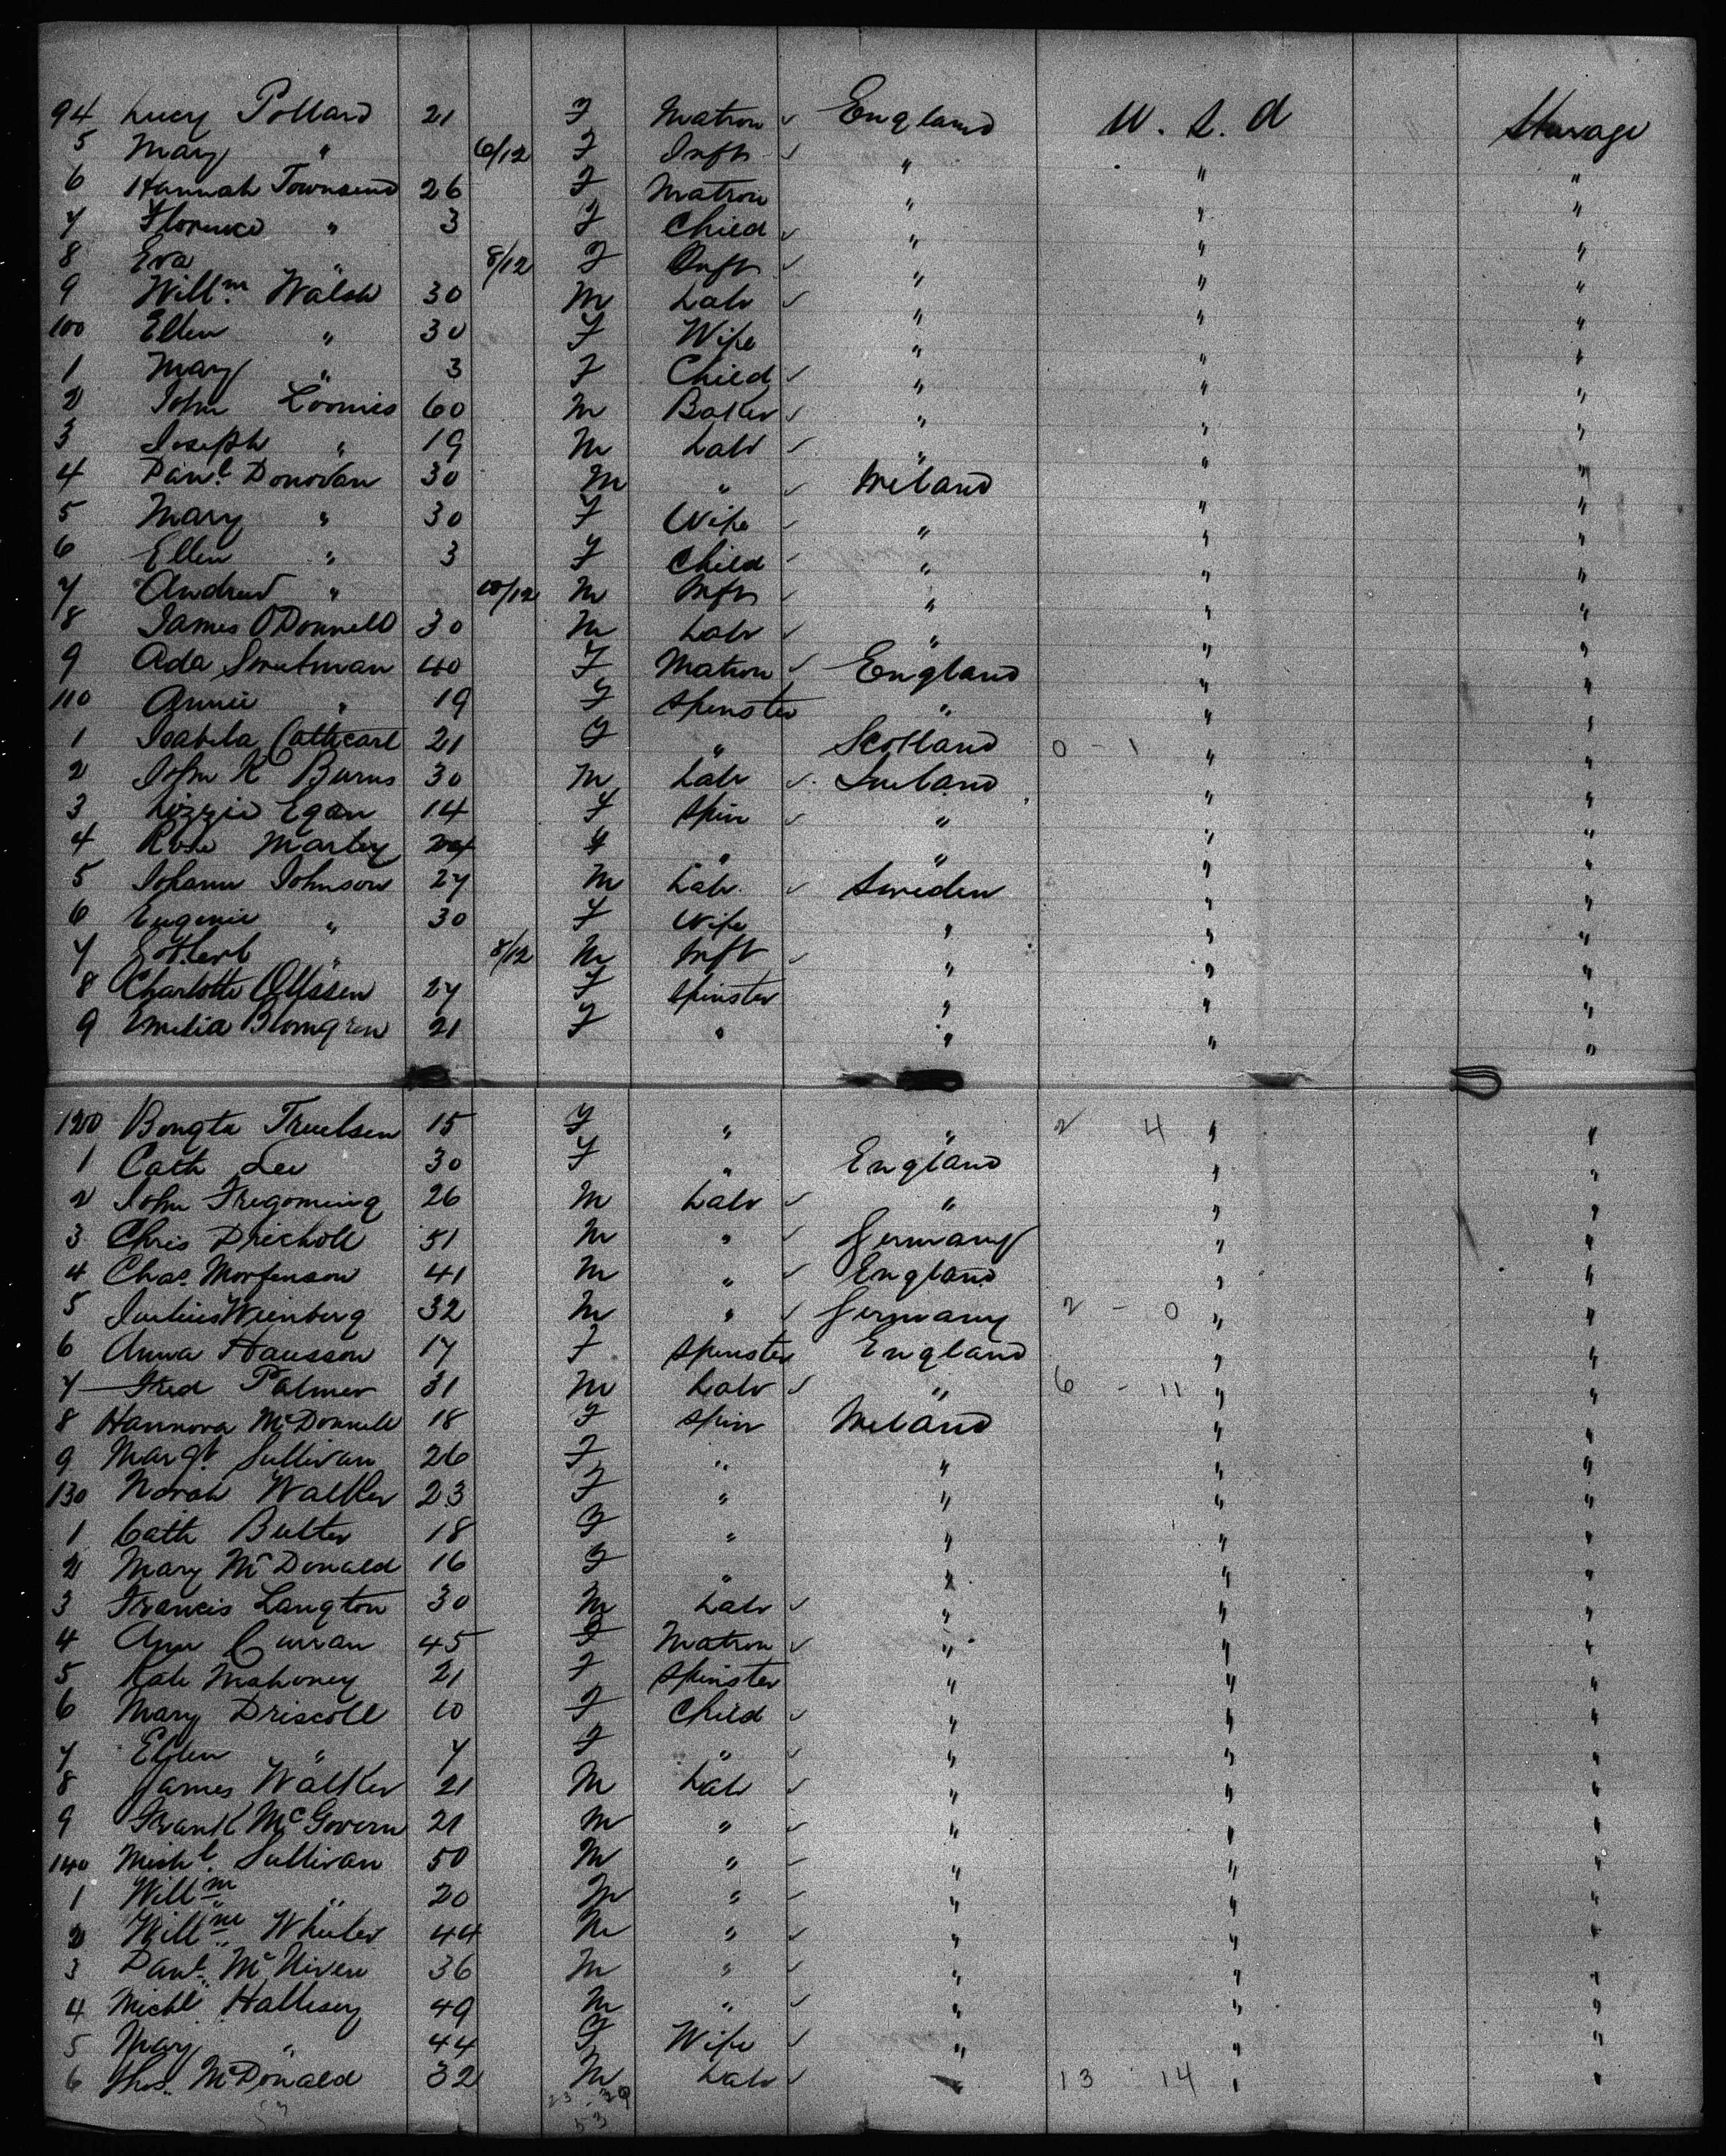 94 Lucy Pollard 21 F Matron ✓ England U. S. A Steerage
5 Mary " 6/12 F Inft ✓ " " "
6 Hannah Townsend 26 F Matron " " "
7 Florence " 3 F Child ✓ " " "
8 Eva " 8/12 F Inft ✓ " " "
9 Willm. Walsh 30 M Labr ✓ " " "
100 Ellen " 30 F Wife " " "
1 Mary " 3 F Child ✓ " " "
2 John Loomis 60 M Baker ✓ " " "
3 Joseph " 19 M Labr ✓ " " "
4 Danl. Donovan 30 M " ✓ Ireland " "
5 Mary " 30 F Wife ✓ " " "
6 Ellen " 3 F Child ✓ " " "
7 Andrew " 10/12 M Inft ✓ " " "
8 James O'Donnell 30 M Labr ✓ " " "
9 Ada 40 F Matron ✓ England " "
110 Annie " 19 F Spinster " " "
1 Isabela Cathcart 21 F " Scotland 0 - 1 " "
2 John K Burns 30 M Labr ✓ Ireland " "
3 Lizzie Egan 14 F Spin ✓ " " "
4 Rose Marley F " " " "
5 Johann Johnson 27 M Labr ✓ Sweden " "
6 Eugenie " 30 F Wife " " "
7 " 8/12 M Inft ✓ " " "
8 Charlotte Olissen 27 F Spinster " " "
9 Emilia Blomgren 21 F " " " "
120 Bengta Truelsen 15 F " " 2 4 " "
1 Cath Lee 30 F " England " "
2 John Tregoming 26 M Labr ✓ " " "
3 Chris Dricholl 51 M " ✓ Germany " "
4 Chas. Mortenson 41 M " ✓ England " "
5 Julius Wienberg 32 M " ✓ Germany 2 - 0 " "
6 Anna Hansson 17 F Spinster England " "
7 Fred Palmer 31 M Labr ✓ " 6 - 11 " "
8 Hannora McDonnell 18 F Spin Ireland " "
9 Margt. Sullivan 26 F " " " "
130 Norah Walker 23 F " " " "
1 Cath Butler 18 F " " " "
2 Mary McDonald 16 F " " " "
3 Francis Langton 30 M Labr ✓ " " "
4 Ann Curran 45 F Matron ✓ " " "
5 Kate Mahoney 21 F Spinster " " "
6 Mary Driscoll 10 F Child ✓ " " "
7 Ellen " 7 F " ✓ " " "
8 James Walker 21 M Labr ✓ " " "
9 Frank McGovern 21 M " ✓ " " "
140 Michl. Sullivan 50 M " ✓ " " "
1 Willm " 20 M " ✓ " " "
2 Willm Wheeler 44 M " ✓ " " "
3 Danl. McNiven 36 M " ✓ " " "
4 Michl Hallisey 49 M " ✓ " " "
5 Mary " 44 F Wife ✓ " " "
6 Thos. McDonald 32 M Labr ✓ " 13 14 " "
53